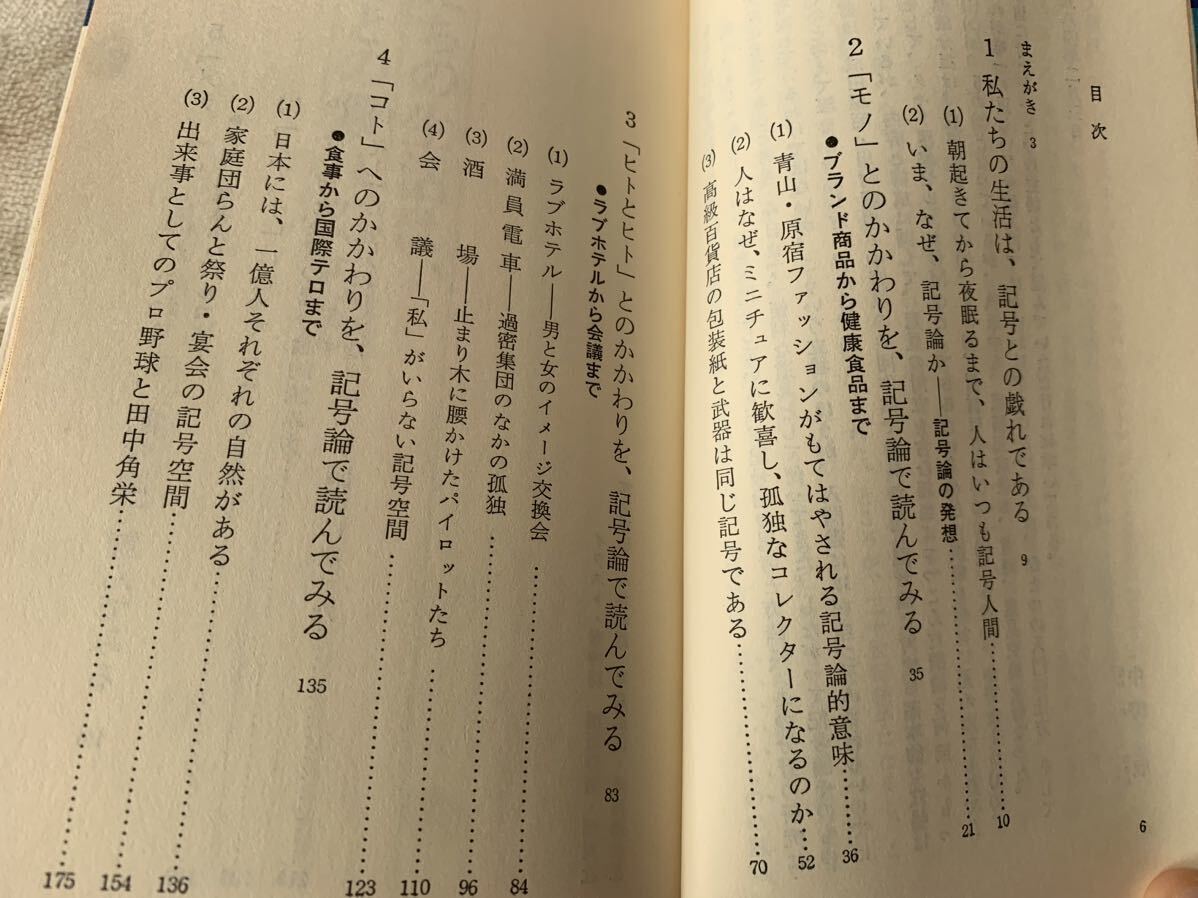 目次
まえがき 3
1 私たちの生活は、記号との戯れである 9
(1) 朝起きてから夜眠るまで、人はいつも記号人間……………10
(2) いま、なぜ、記号論か——記号論の発想……………21
2 「モノ」とのかかわりを、記号論で読んでみる 35
●ブランド商品から健康食品まで
(1) 青山・原宿ファッションがもてはやされる記号論的意味……………36
(2) 人はなぜ、ミニチュアに歓喜し、孤独なコレクターになるのか……52
(3) 高級百貨店の包装紙と武器は同じ記号である……………70
6
3 「ヒトとヒト」とのかかわりを、記号論で読んでみる 83
●ラブホテルから会議まで
(1) ラブホテル——男と女のイメージ交換会……………84
(2) 満員電車——過密集団のなかの孤独……………96
(3) 酒場——止まり木に腰かけたパイロットたち……………110
(4) 会議——「私」がいらない記号空間……………123
4 「コト」へのかかわりを、記号論で読んでみる 135
●食事から国際テロまで
(1) 日本には、一億人それぞれの自然がある……………136
(2) 家庭団らんと祭り・宴会の記号空間……………154
(3) 出来事としてのプロ野球と田中角栄……………175